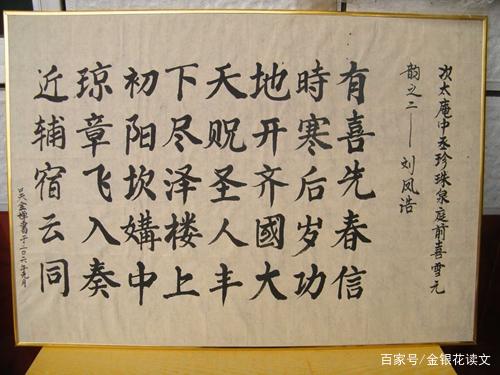 次太庵中丞珍珠泉庭前喜雪元
韵之二——刘凤浩
有喜先春信
時寒后岁功
地开齐國大
天贶圣人丰
下尽泽楼上
初阳坎媾中
琼章飞入奏
近辅宿云同
吴金書于二〇六年元月
百家号/金银花读文